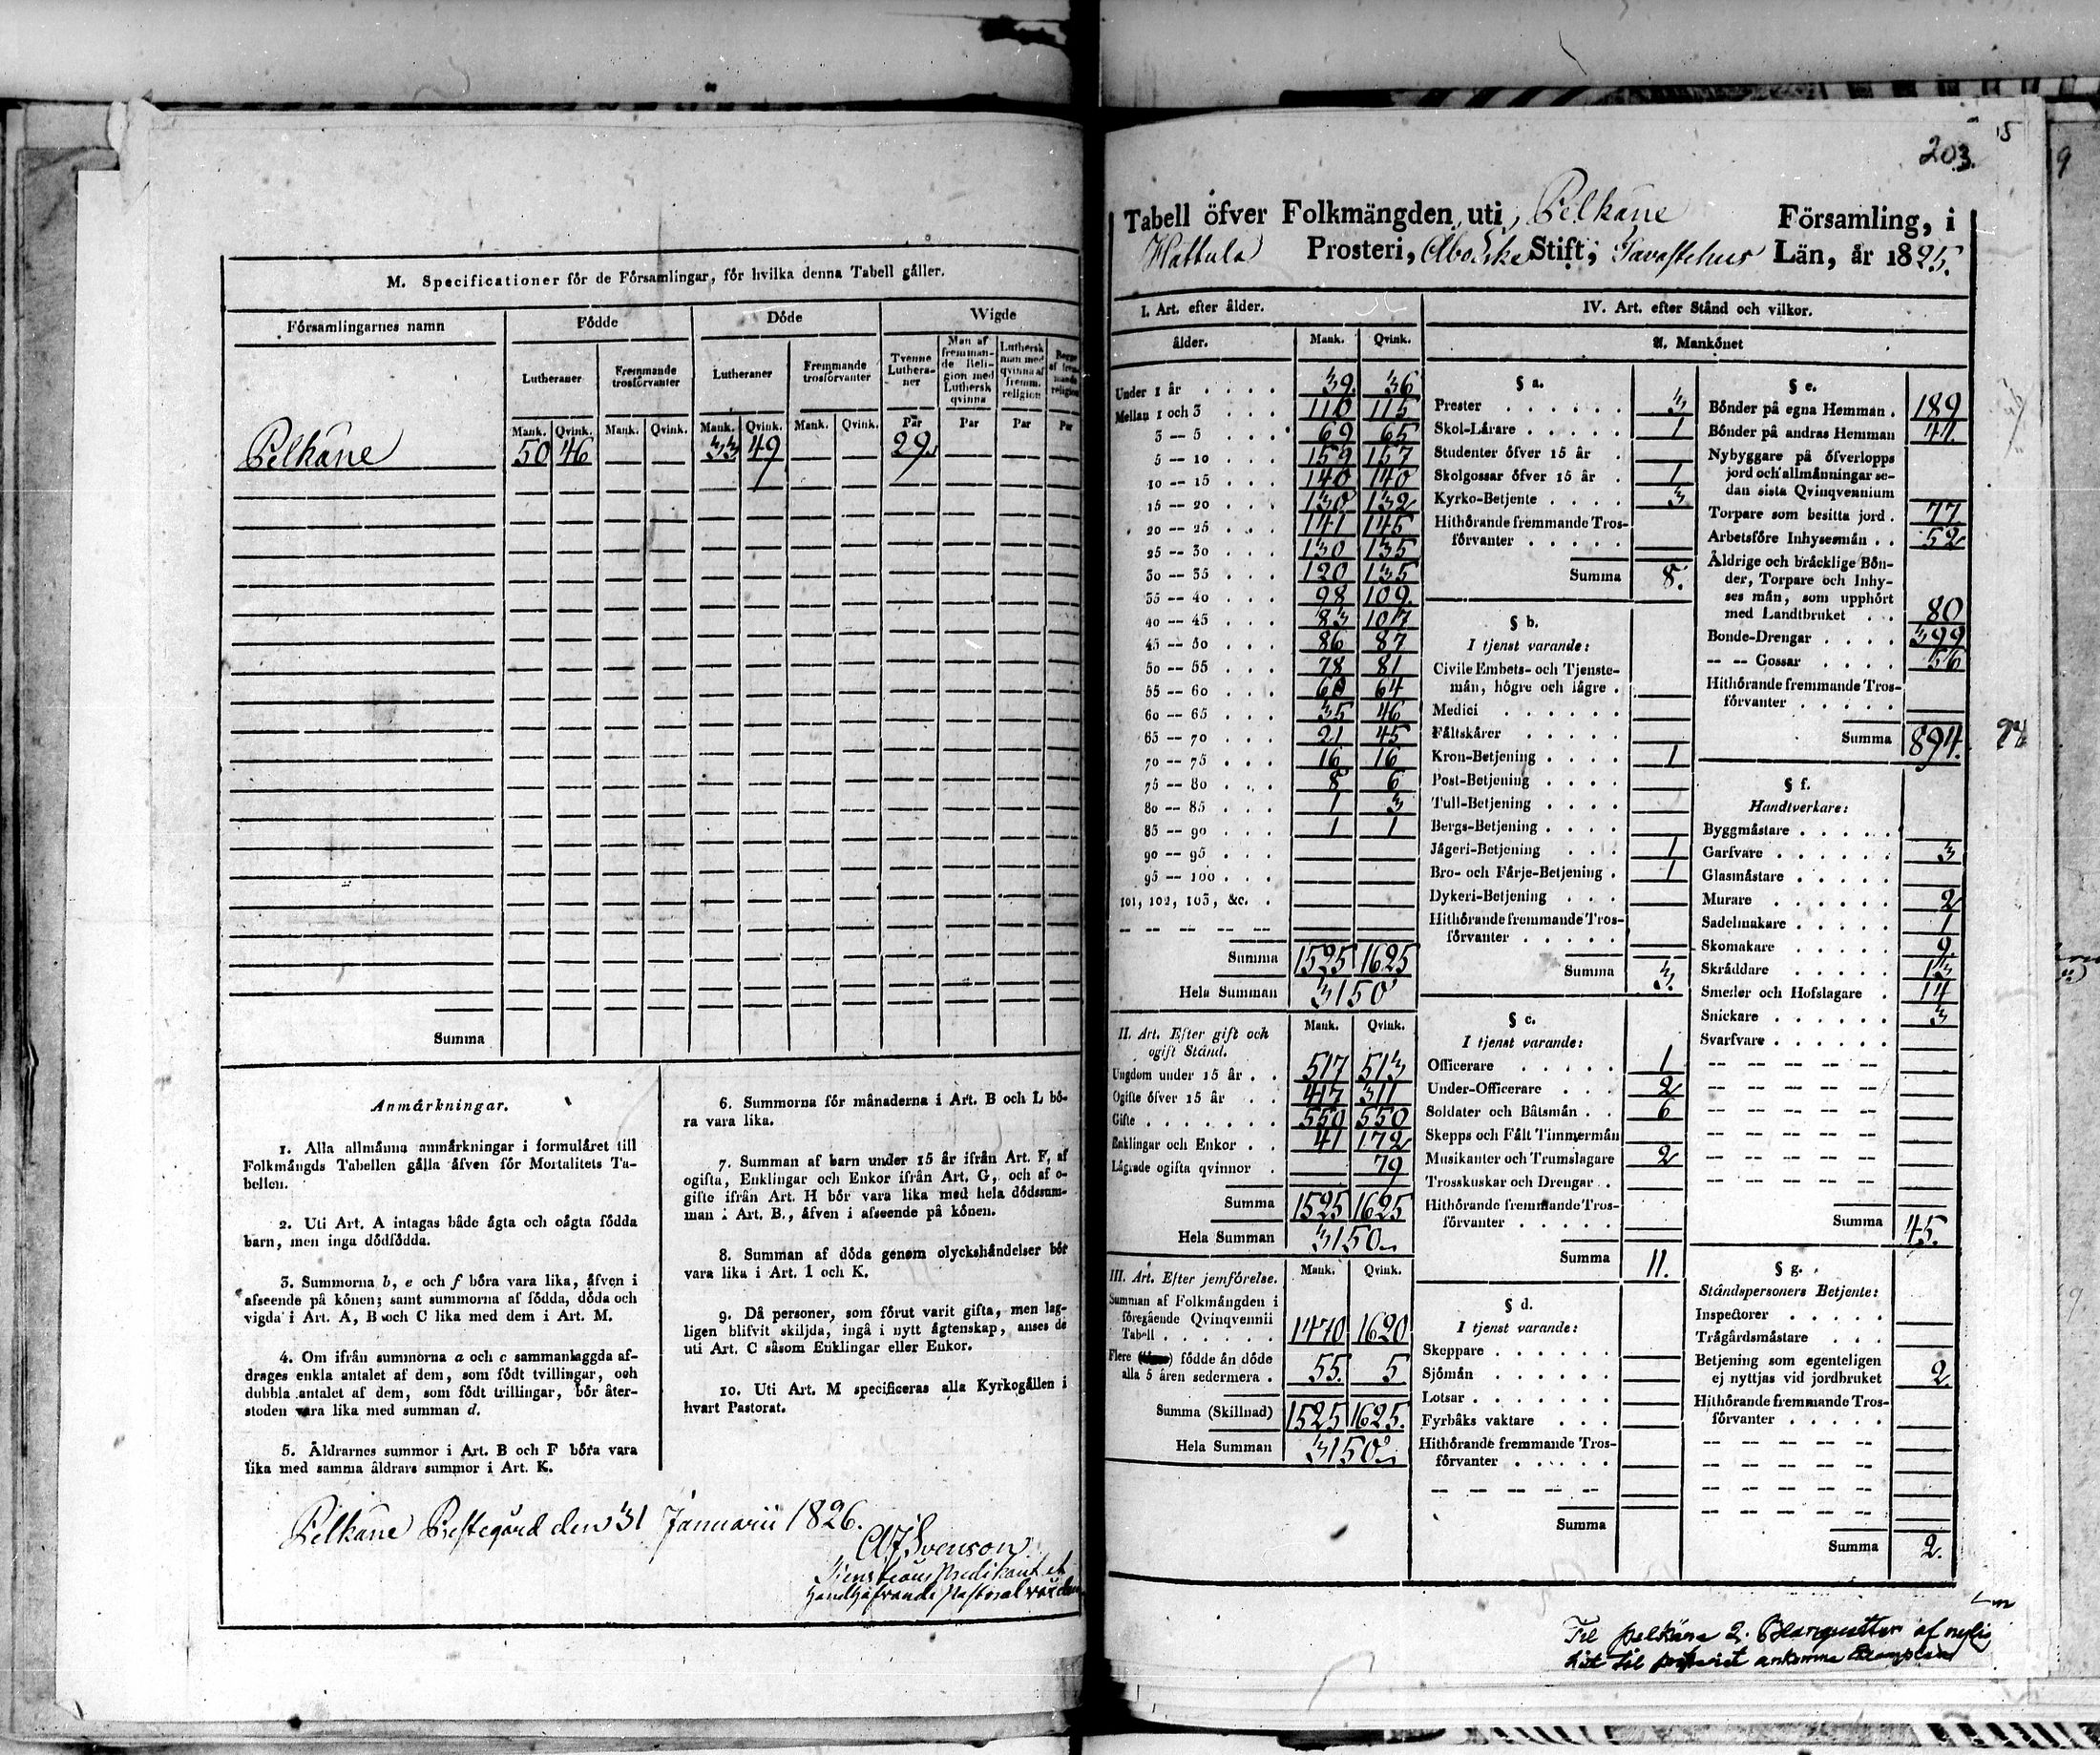 M. Specificationer för de Församlingar, för hvilka denna Tabell gäller.
Församlingarnes namn Födde Döde Wigde
Lutheraner Fremmande trosförvanter Lutheraner Fremmande trosförvanter Tvenne Lutheraner Man af fremmande Religion med Luthersk qvinna Luthersk man med qvinna af fremm. religion Begge af fremmande religion
Mank. Qvink. Mank. Qvink. Mank. Qvink. Mank. Qvink. Par Par Par Par
Pelkäne 50 46 — — 33 49 — — 29.
Summa
Anmärkningar.
1. Alla allmänna anmärkningar i formuläret till
Folkmängds Tabellen gälla äfven för Mortalitets Ta-
bellen.
2. Uti Art. A intagas både ägta och oägta födda
barn, men inga dödfödda.
3. Summorna b, e och f böra vara lika, äfven i
afseende på könen; samt summorna af födda, döda och
vigda i Art. A, B och C lika med dem i Art. M.
4. Om ifrån summorna a och c sammanlaggda af-
drages enkla antalet af dem, som födt tvillingar, och
dubbla antalet af dem, som födt trillingar, bör åter-
stoden vara lika med summan d.
5. Äldrarnes summor i Art. B och F böra vara
lika med samma åldrars summor i Art. K.
6. Summorna för månaderna i Art. B och L bö-
ra vara lika.
7. Summan af barn under 15 år ifrån Art. F, af
ogifta, Enklingar och Enkor ifrån Art. G, och af o-
gifte ifrån Art. H bör vara lika med hela dödssum-
man i Art. B., äfven i afseende på könen.
8. Summan af döda genom olyckshändelser bör
vara lika i Art. I och K.
9. Då personer, som förut varit gifta, men lag-
ligen blifvit skiljda, ingå i nytt ägtenskap, anses de
uti Art. C såsom Enklingar eller Enkor.
10. Uti Art. M specificeras alla Kyrkogällen i
hvart Pastorat.
Pelkäne Prestegård den 31 Januarii 1826.
Svenson
203.
15
Tabell öfver Folkmängden uti Pelkäne Församling, i
Hattula Prosteri, Åboske Stift, Tavastehus Län, år 1825.
I. Art. efter ålder.
ålder. Mank. Qvink.
Under 1 år 39. 36
Mellan 1 och 3 110 115
3 — 5 69 65
5 — 10 159 157
10 — 15 140 140
15 — 20 130 132
20 — 25 141 145
25 — 30 130 135
30 — 35 120 135
35 — 40 98 109.
40 — 45 83 107
45 — 50 86 87
50 — 55 78 81
55 — 60 60 64
60 — 65 35 46
65 — 70 21 45
70 — 75 16 16
75 — 80 8 6
80 — 85 1 3
85 — 90 1 1
90 — 95
95 — 100
101, 102, 103, &c.
Summa 1525 1625
Hela Summan 3150
II. Art. Efter gift och ogift Stånd. Mank. Qvink.
Ungdom under 15 år 517 513
Ogifte öfver 15 år 417 311
Gifte 550 550
Enklingar och Enkor 41 172
Lägrade ogifta qvinnor 79
Summa 1525 1625
Hela Summan 3150
III. Art. Efter jemförelse. Mank. Qvink.
Summan af Folkmängden i
föregående Qvinqvennii
Tabell 1470 1620
Flere födde än döde
alla 5 åren sedermera 55. 5
Summa (Skillnad) 1525 1625.
Hela Summan 3150
IV. Art. efter Stånd och vilkor.
A. Mankönet
§ a.
Prester 3
Skol-Lärare 1
Studenter öfver 15 år
Skolgossar öfver 15 år 1
Kyrko-Betjente 3
Hithörande fremmande Tros-
förvanter
Summa 8.
§ b.
I tjenst varande:
Civile Embets- och Tjenste-
män, högre och lägre
Medici
Fältskärer
Kron-Betjening 1
Post-Betjening
Tull-Betjening
Bergs-Betjening
Jägeri-Betjening 1
Bro- och Färje-Betjening 1
Dykeri-Betjening
Hithörande fremmande Tros-
förvanter
Summa 3.
§ c.
I tjenst varande:
Officerare 1
Under-Officerare 2
Soldater och Båtsmän 6
Skepps och Fält Timmermän
Musikanter och Trumslagare 2
Trosskuskar och Drengar
Hithörande fremmande Tros-
förvanter
Summa 11.
§ d.
I tjenst varande:
Skeppare
Sjömän
Lotsar
Fyrbåks vaktare
Hithörande fremmande Tros-
förvanter
Summa
§ e.
Bönder på egna Hemman 189
Bönder på andras Hemman 41.
Nybyggare på öfverlopps
jord och allmänningar se-
dan sista Qvinqvennium
Torpare som besitta jord 77
Arbetsföre Inhysesmän 52
Äldrige och bräcklige Bön-
der, Torpare och Inhy-
ses män, som upphört
med Landtbruket 80
Bonde-Drengar 399
— — Gossar 56
Hithörande fremmande Tros-
förvanter
Summa 894.
§ f.
Handtverkare:
Byggmästare
Garfvare 3
Glasmästare
Murare 2
Sadelmakare 1
Skomakare 9.
Skräddare 13
Smeder och Hofslagare 14
Snickare 3
Svarfvare
Summa 45.
§ g.
Ståndspersoners Betjente:
Inspectorer
Trägårdsmästare
Betjening som egenteligen
ej nyttjas vid jordbruket 2.
Hithörande fremmande Tros-
förvanter
Summa 2.
Til pelkäne 2. Blanquetter af